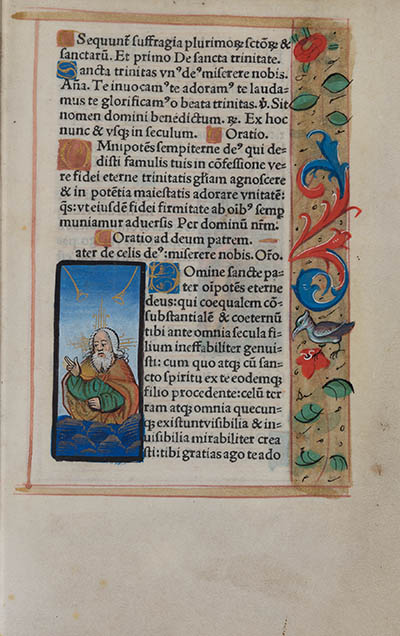 Sequunt̃ suffragia plurimoꝝ sctõꝝ &
sanctarũ. Et primo De sancta trinitate.
Sancta trinitas vnꝰ deꝰ miserere nobis.
Aña. Te inuocamꝰ te adoramꝰ te lauda-
mus te glorificamꝰ o beata trinitas. ℣. Sit
nomen domini benedictum. ℟. Ex hoc
nunc & vsqꝫ in seculum. Oratio.
OMnipotẽs sempiterne deꝰ qui de-
disti famulis tuis in cõfessione ve-
re fidei eterne trinitatis gl̃iam agnoscere
& in potẽtia maiestatis adorare vnitatẽ:
q̃s: vt eiusdẽ fidei firmitate ab oĩbꝰ semp
muniamur aduersis Per dominũ nr̃m.
Oratio ad deum patrem.
ater de celis deꝰ: miserere nobis. Oro.
DOmine sancte pa-
ter oĩpotẽs eterne
deus: qui coequalem cõ-
substantialẽ & coeternũ
tibi ante omnia secula fi-
lium ineffabiliter genui-
sti: cum quo atqꝫ cũ san-
cto spiritu ex te eodemqꝫ
filio procedente: celũ ter
ram atqꝫ omnia quecun-
qꝫ existunt visibilia & in-
uisibilia mirabiliter crea
sti: tibi gratias ago te ado